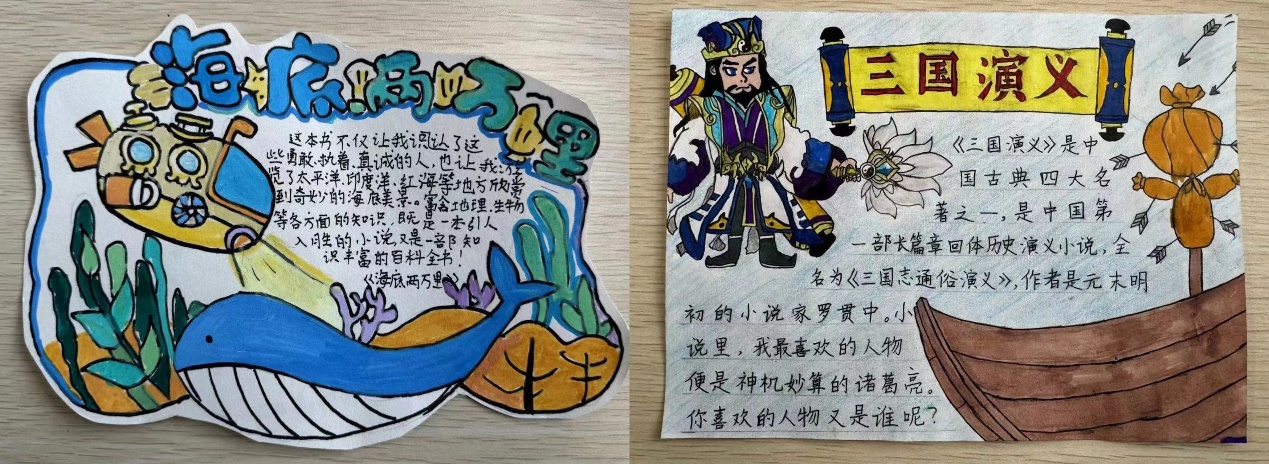 海底两万里
这本书不仅让我认识了这
些勇敢、执着、真诚的人,也让我
览了太平洋、印度洋、红海等地方欣赏
到奇妙的海底美景。富含地理、生物
等各方面的知识,既是一本引人
入胜的小说又是一部知
识丰富的百科全书!
《海底两万里》
三国演义
《三国演义》是中
国古典四大名
著之一,是中国第
一部长篇章回体历史演义小说,全
名为《三国志通俗演义》,作者是元末明
初的小说家罗贯中。小
说里,我最喜欢的人物
便是神机妙算的诸葛亮。
你喜欢的人物又是谁呢?